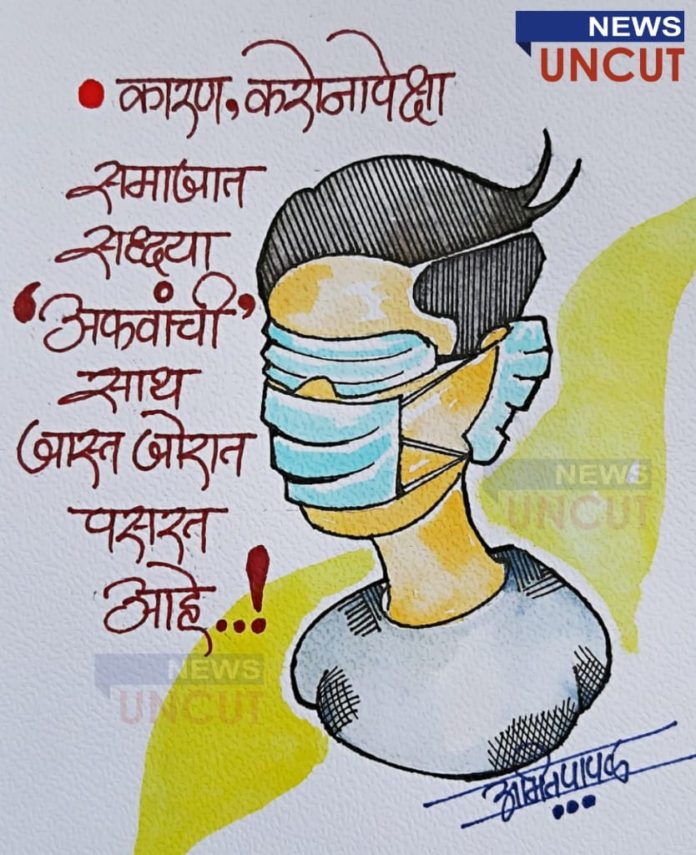 NEWS
UNCUT
• कारण, करोनापेक्षा
समाजात
सध्दया
‘अफवांची’
साथ
जास्त जोरात
पसरत
आहे..!
NEWS
UNCUT
NEWS
UNCUT